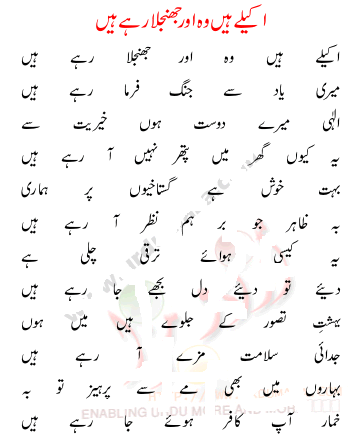 اکیلے ہیں وہ اور جھنجلا رہے ہیں
اکیلے ہیں وہ اور جھنجلا رہے ہیں
میری یاد سے جنگ فرما رہے ہیں
الٰہی میرے دوست ہوں خیریت سے
یہ کیوں گھر میں پتھر نہیں آ رہے ہیں
بہت خوش ہے گستاخیوں پر ہماری
بہ ظاہر جو برہم نظر آ رہے ہیں
یہ کیسی ہوائے ترقی چلی ہے
دیئے تو دیئے دل بجھے جا رہے ہیں
بہشتِ تصور کے جلوے ہیں میں ہوں
جدائی سلامت مزے آ رہے ہیں
بہاروں میں بھی مے سے پرہیز تو بہ
خمار آپ کافر ہوئے جا رہے ہیں
ENABLING URDU MORE AND MOR